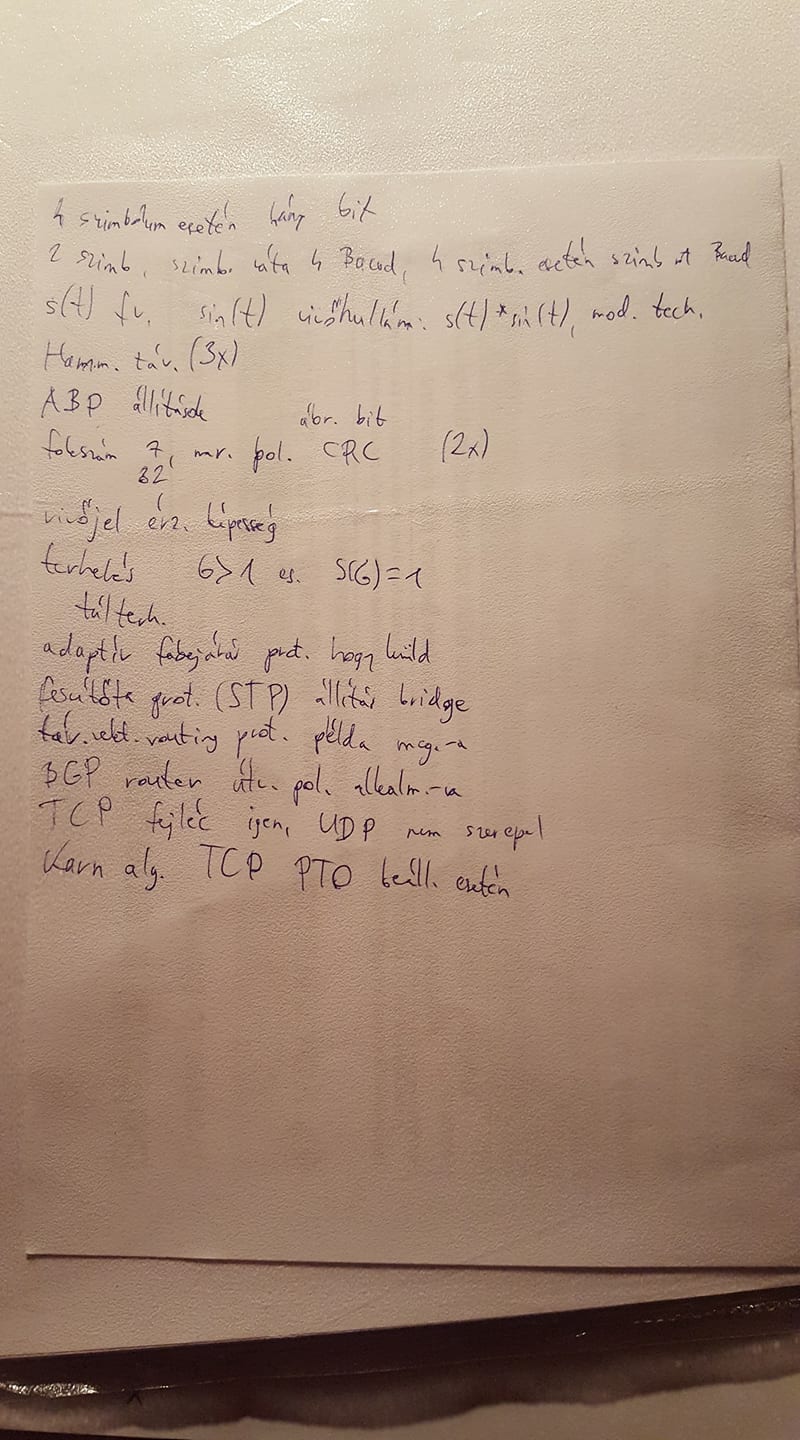 4 szimbólum esetén hány bit
2 szimb, szimb. ráta 4 Baud, 4 szimb. esetén szimb rt Baud
s(t) fv. sin(t) vivőhullám: s(t)*sin(t), mod. tech.
Hamm. táv. (3x)
ABP állítások ábr. bit
fokszám 7, mr. pol. CRC (2x)
32
vivőjel érz. képesség
terhelés G>1 es. S(G)=1
túlterh.
adaptív fabejárás prot. hogy küld
feszítőfa prot. (STP) állítás bridge
táv.vekt.routing prot. példa meg.-a
BGP router útv. pol. alkalm.-va
TCP fejléc igen, UDP nem szerepel
Karn alg. TCP RTO beáll. esetén